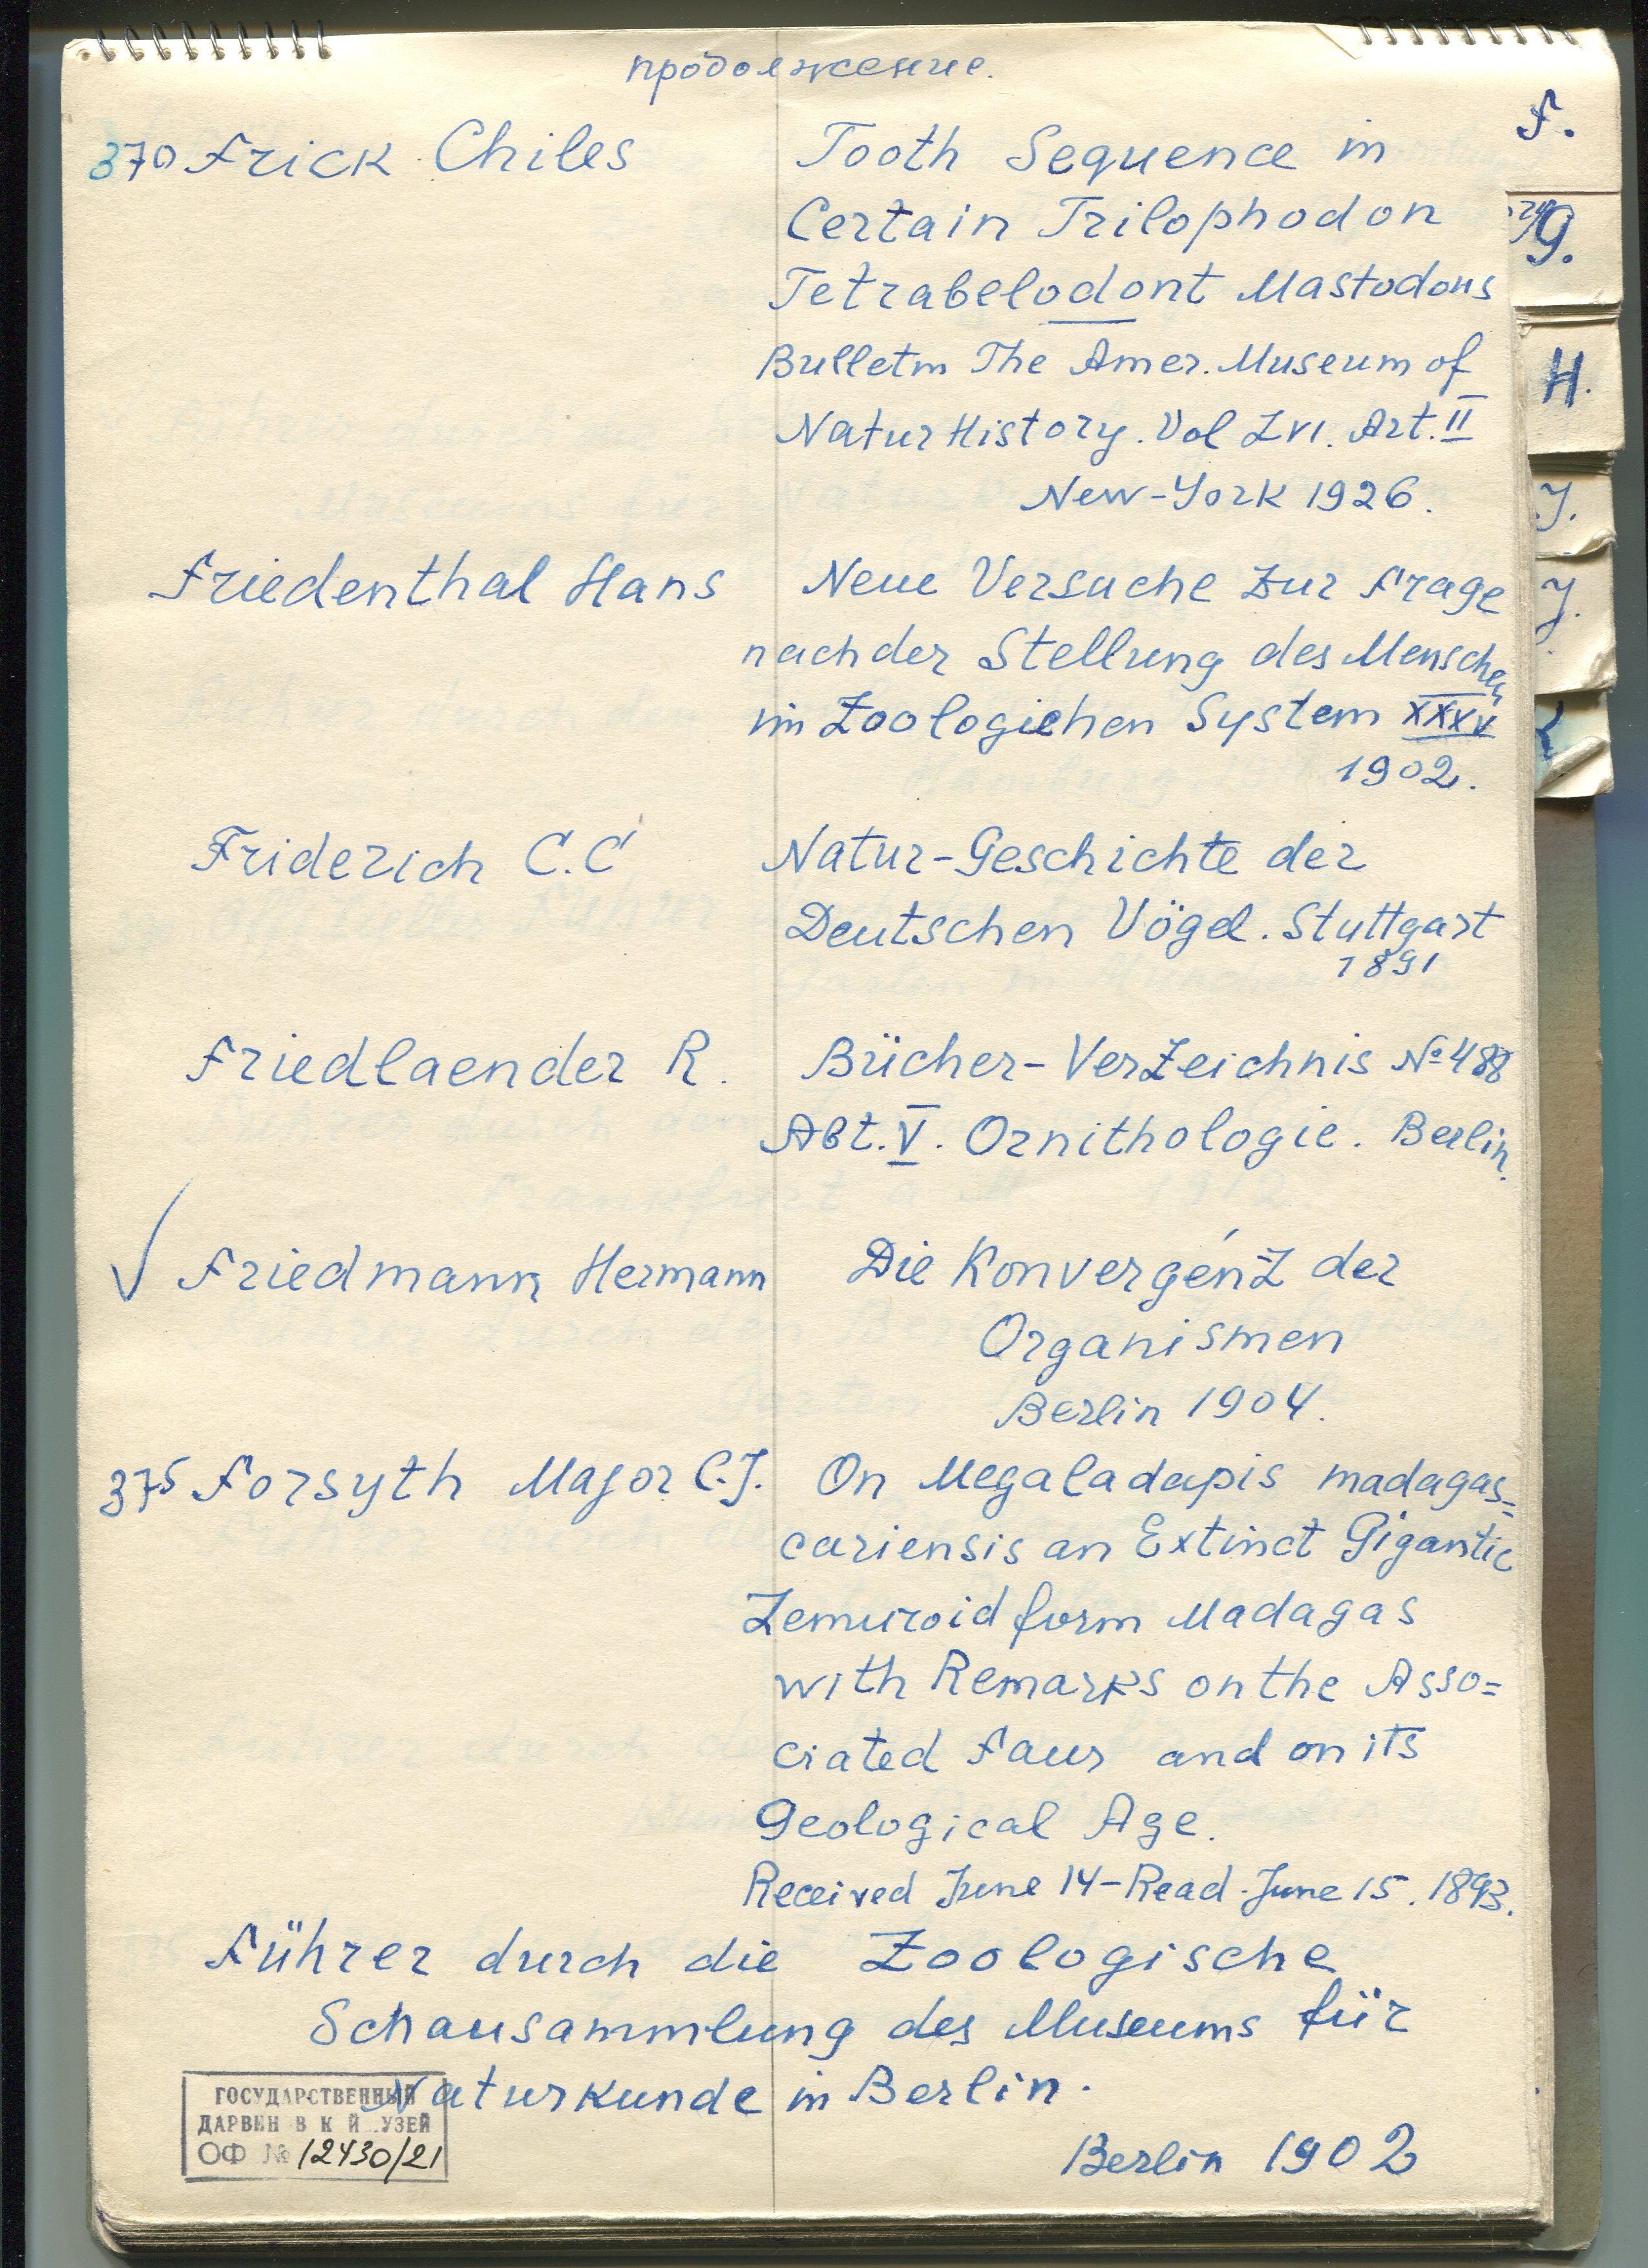 продолжение.
370 Frick Chiles
Tooth Sequence in
Certain Trilophodon
Tetrabelodont Mastodons
Bulletin The Amer. Museum of
Natur History. Vol LVI. Art. II
New-York 1926.
Friedenthal Hans
Neue Versuche zur Frage
nach der Stellung des Menschen
im Zoologichen System XXXV
1902.
Friderich C.C
Natur-Geschichte der
Deutschen Vögel. Stuttgart
1891
Friedlaender R.
Bücher-Verzeichnis № 488
Abt. V. Ornithologie. Berlin.
√ Friedmann Hermann
Die Konvergenz der
Organismen
Berlin 1904.
375 Forsyth Major C.J.
On Megaladapis madagas=
cariensis an Extinct Gigantic
Lemuroid form Madagas
with Remarks on the Asso=
ciated Faus and on its
Geological Age.
Received June 14-Read June 15. 1893.
Führer durch die Zoologische
Schausammlung des Museums für
Naturkunde in Berlin.
Berlin 1902
ГОСУДАРСТВЕННЫЙ
ДАРВИН В К Й УЗЕЙ
ОФ № 12430/21
F.
G.
H.
J.
J.